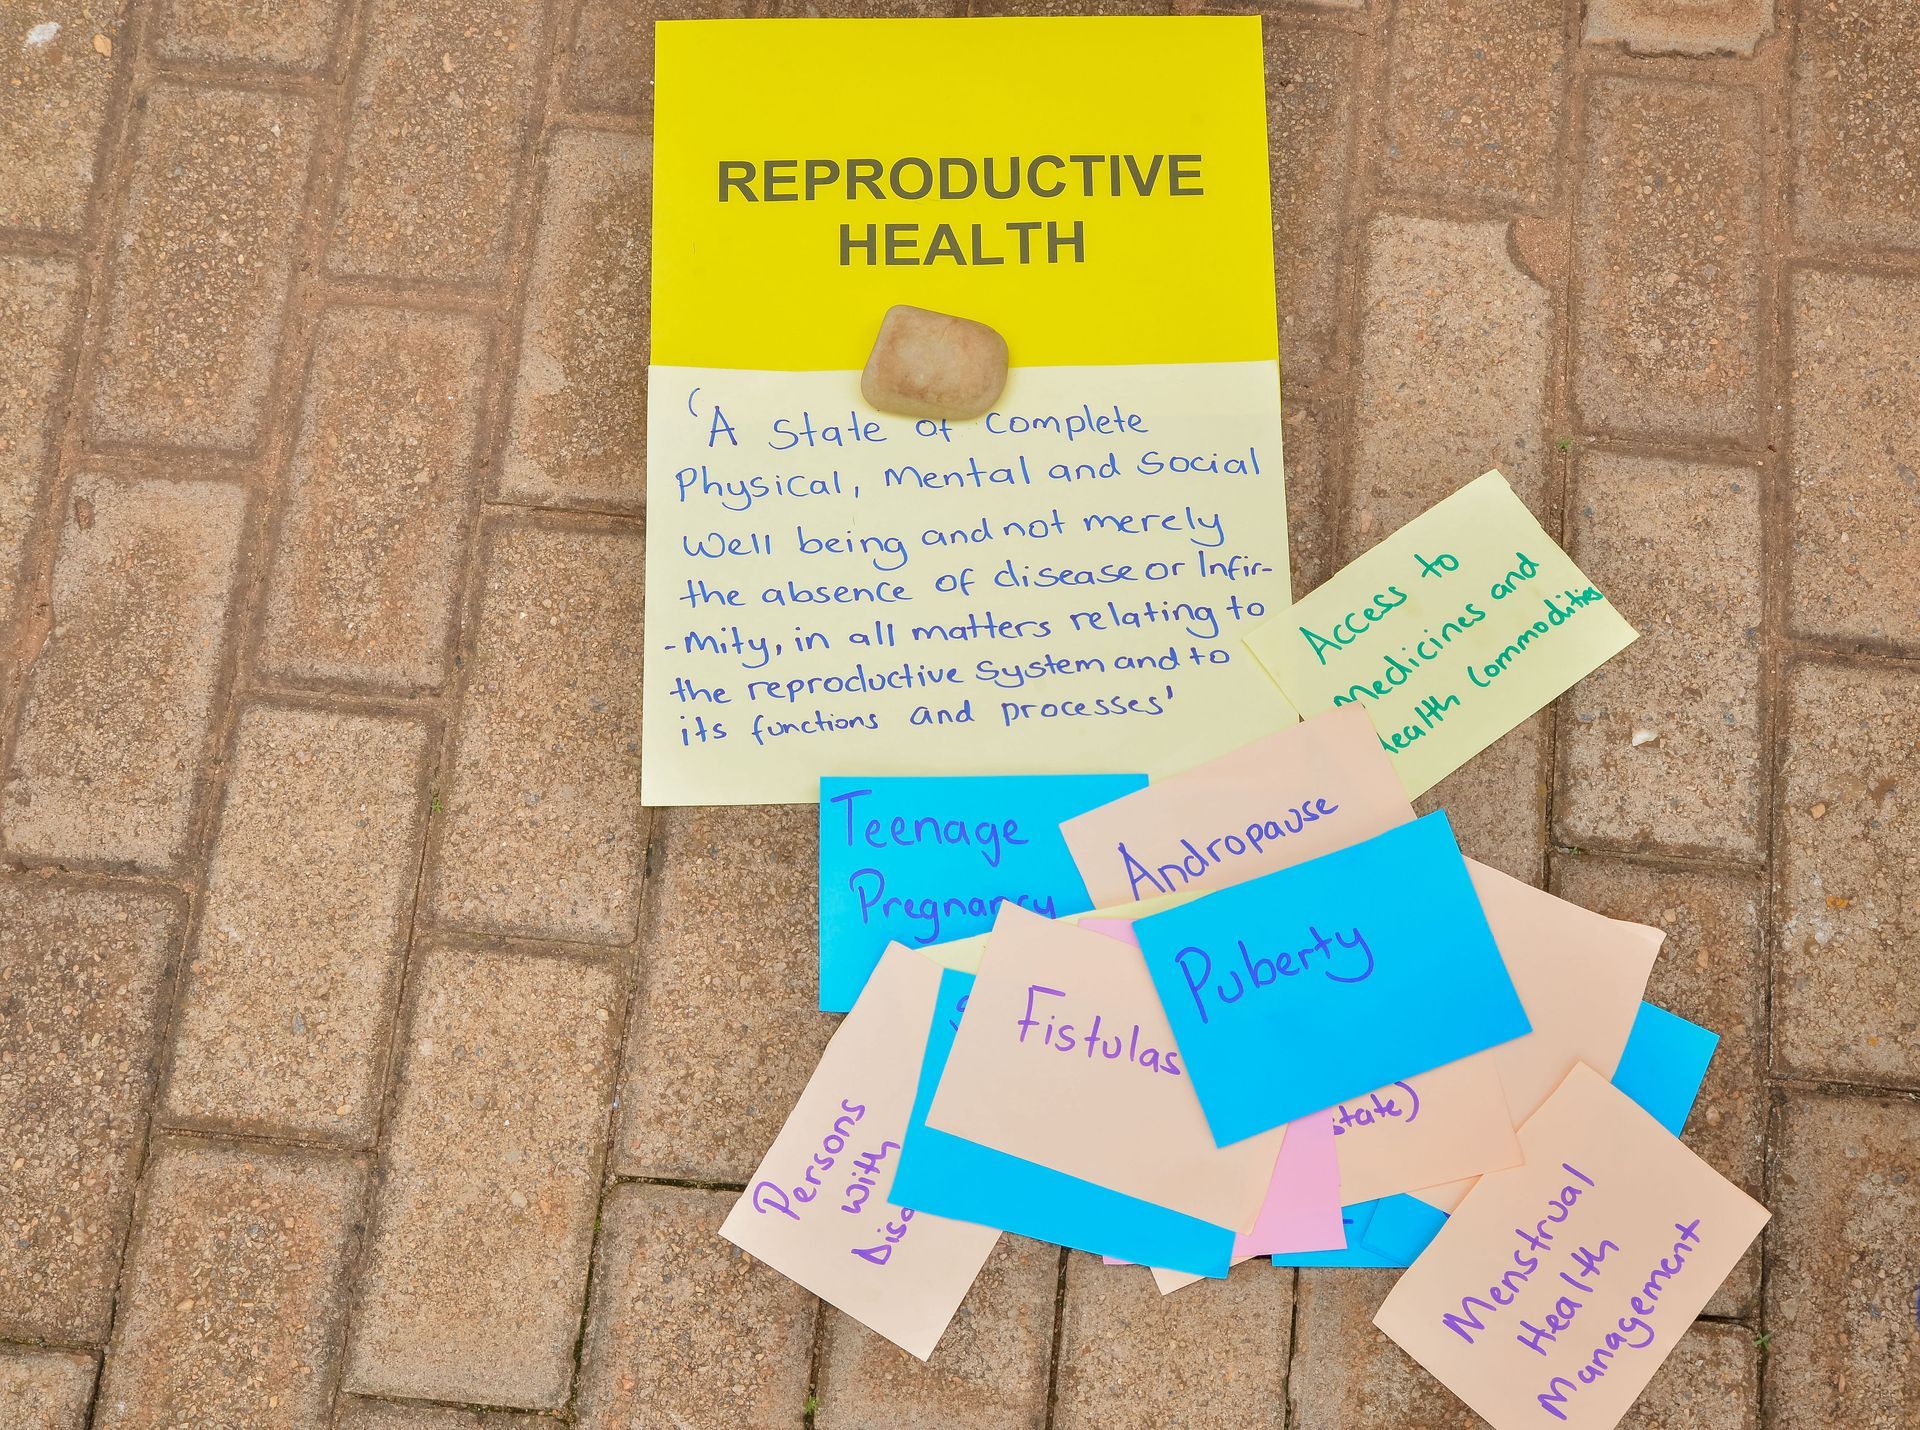 REPRODUCTIVE
HEALTH
'A State of Complete
Physical, Mental and Social
Well being and not merely
the absence of disease or Infir-
-mity, in all matters relating to
the reproductive system and to
its functions and processes'
Access to
Medicines and
Health Commodities
Teenage
Pregnancy
Andropause
Puberty
Fistulas
state)
Persons
with
Menstrual
Health
Management